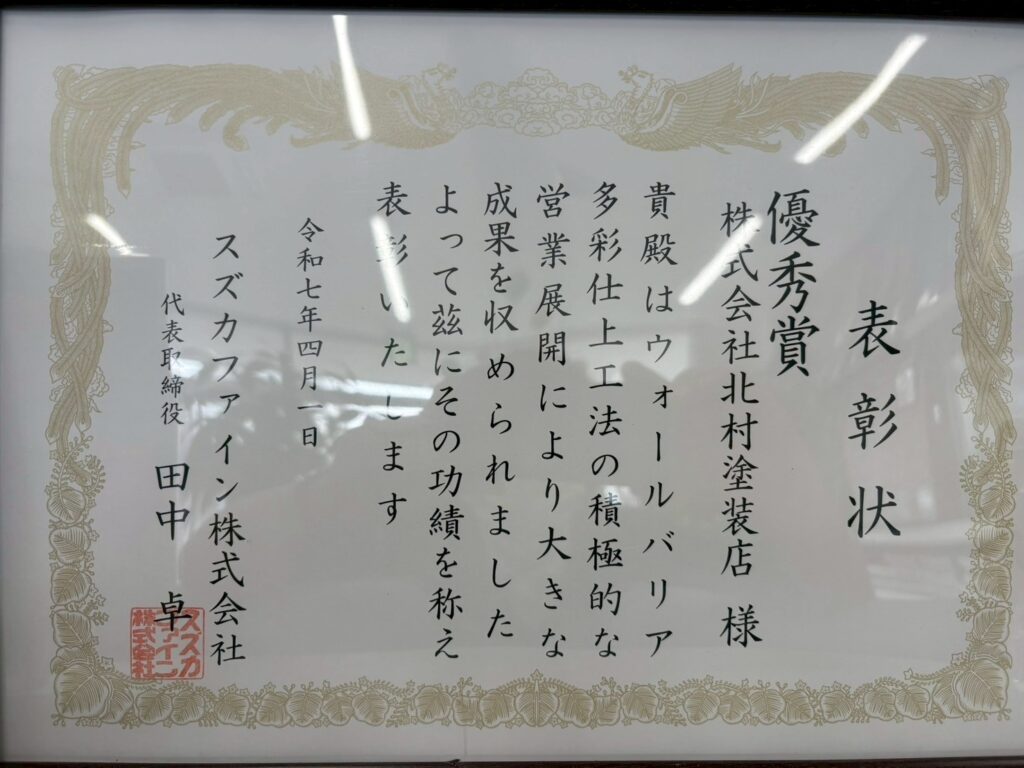 表彰状
優秀賞
株式会社北村塗装店 様
貴殿はウォールバリア
多彩仕上工法の積極的な
営業展開により大きな
成果を収められました
よって茲にその功績を称え
表彰いたします
令和七年四月一日
スズカファイン株式会社
代表取締役 田中 卓
スズカ
ファイン
株式会社